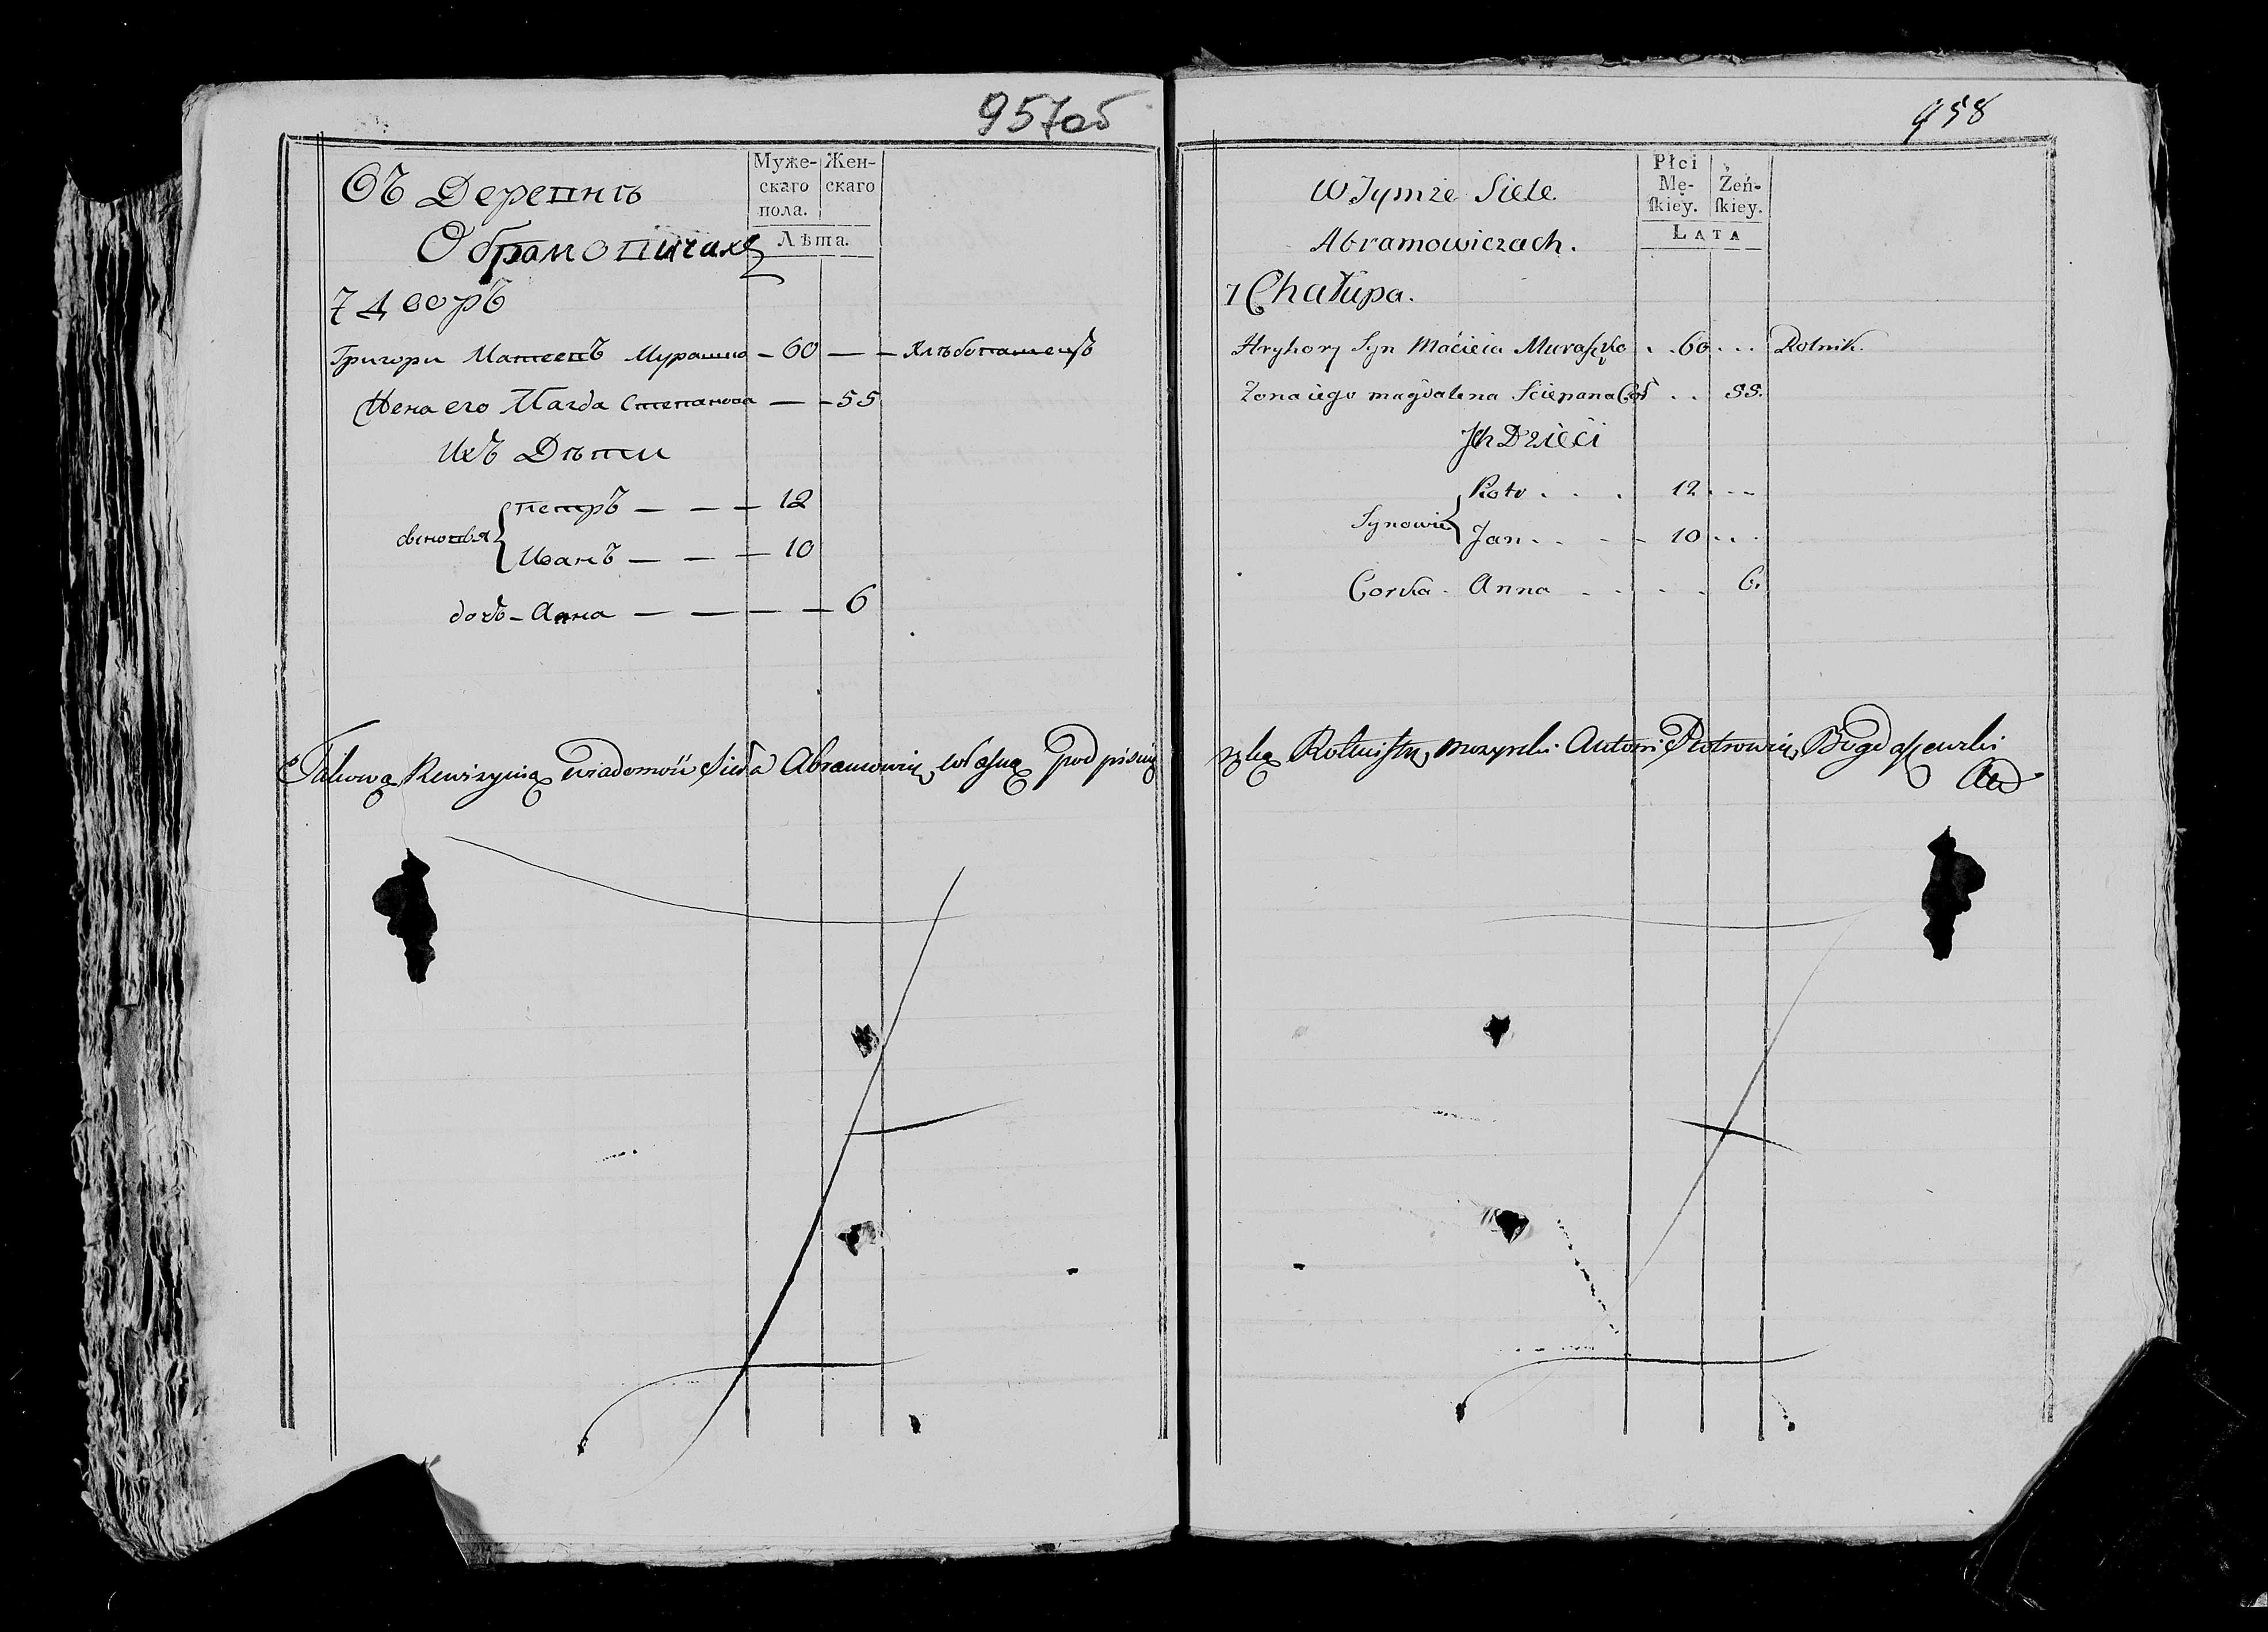 957об
Муже- Жен-
скаго скаго
пола.
Лѣта.
Въ Деревнѣ
Обрамовичахъ
7 дворъ
Григори Матвеевъ Мурашко — 60 — — Хлѣбопашецъ
Жена его Магда Степанова — — 55
Ихъ Дѣти
сыновья { Петръ — — — 12
Иванъ — — — 10
дочь — Анна — — — — 6
Takową Rewizyiną wiadomość Sieła Abramowicz, własną podpisuię
958
Płci
Mę- Żeń-
ſkiey. ſkiey.
LATA
W Tymże Siele
Abramowiczach.
7 Chałupa.
Hryhory Syn Macieia Muraszko . . 60 . . . Rolnik.
Żona iego Magdalena Sciepana Cór . . 55.
Ich Dzieci
Synowie { Piotr . . . 12 . . .
Jan . . . . 10 . . .
Corka . Anna . . . . 6.
ręką Rotmistrz Mozyrski Antoni Piotrowicz Bogdaszewski